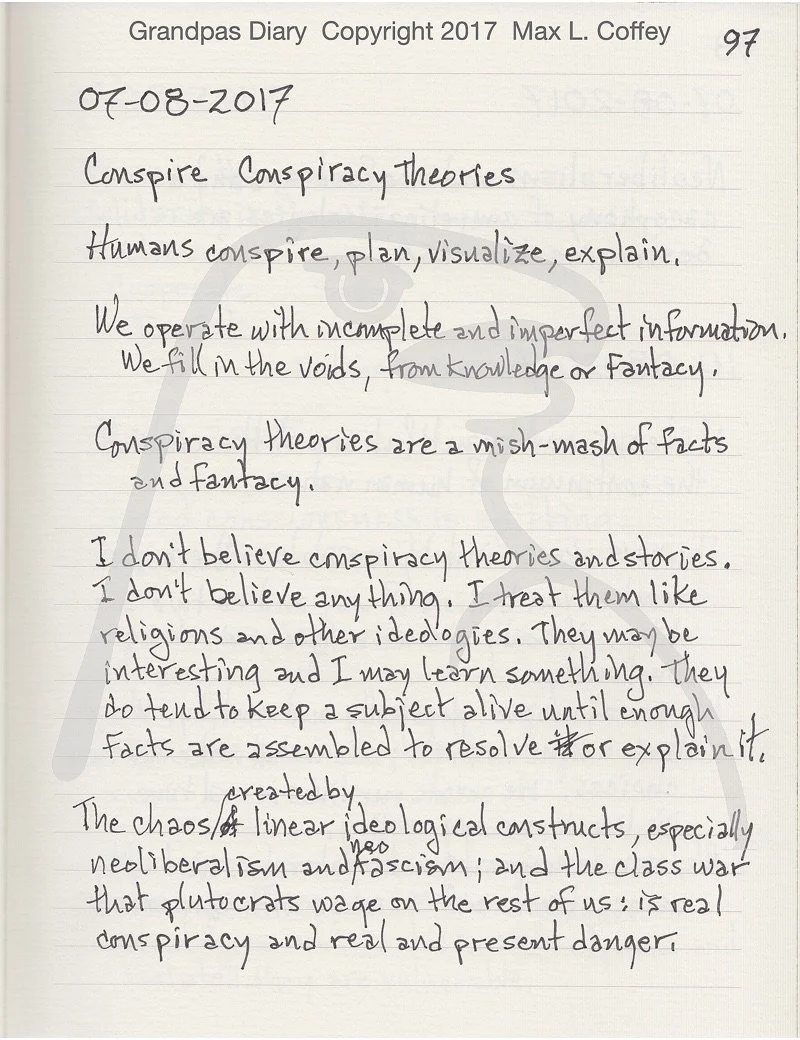 Grandpas Diary Copyright 2017 Max L. Coffey
97
07-08-2017
Conspire Conspiracy theories
Humans conspire, plan, visualize, explain.
We operate with incomplete and imperfect information.
We fill in the voids, from knowledge or Fantacy.
Conspiracy theories are a mish-mash of facts
and fantacy.
I don't believe conspiracy theories and stories.
I don't believe anything. I treat them like
religions and other ideologies. They may be
interesting and I may learn something. They
do tend to keep a subject alive until enough
facts are assembled to resolve it or explain it.
created by
The chaos of linear ideological constructs, especially
neo
neoliberalism and fascism; and the class war
that plutocrats wage on the rest of us: is real
conspiracy and real and present danger.